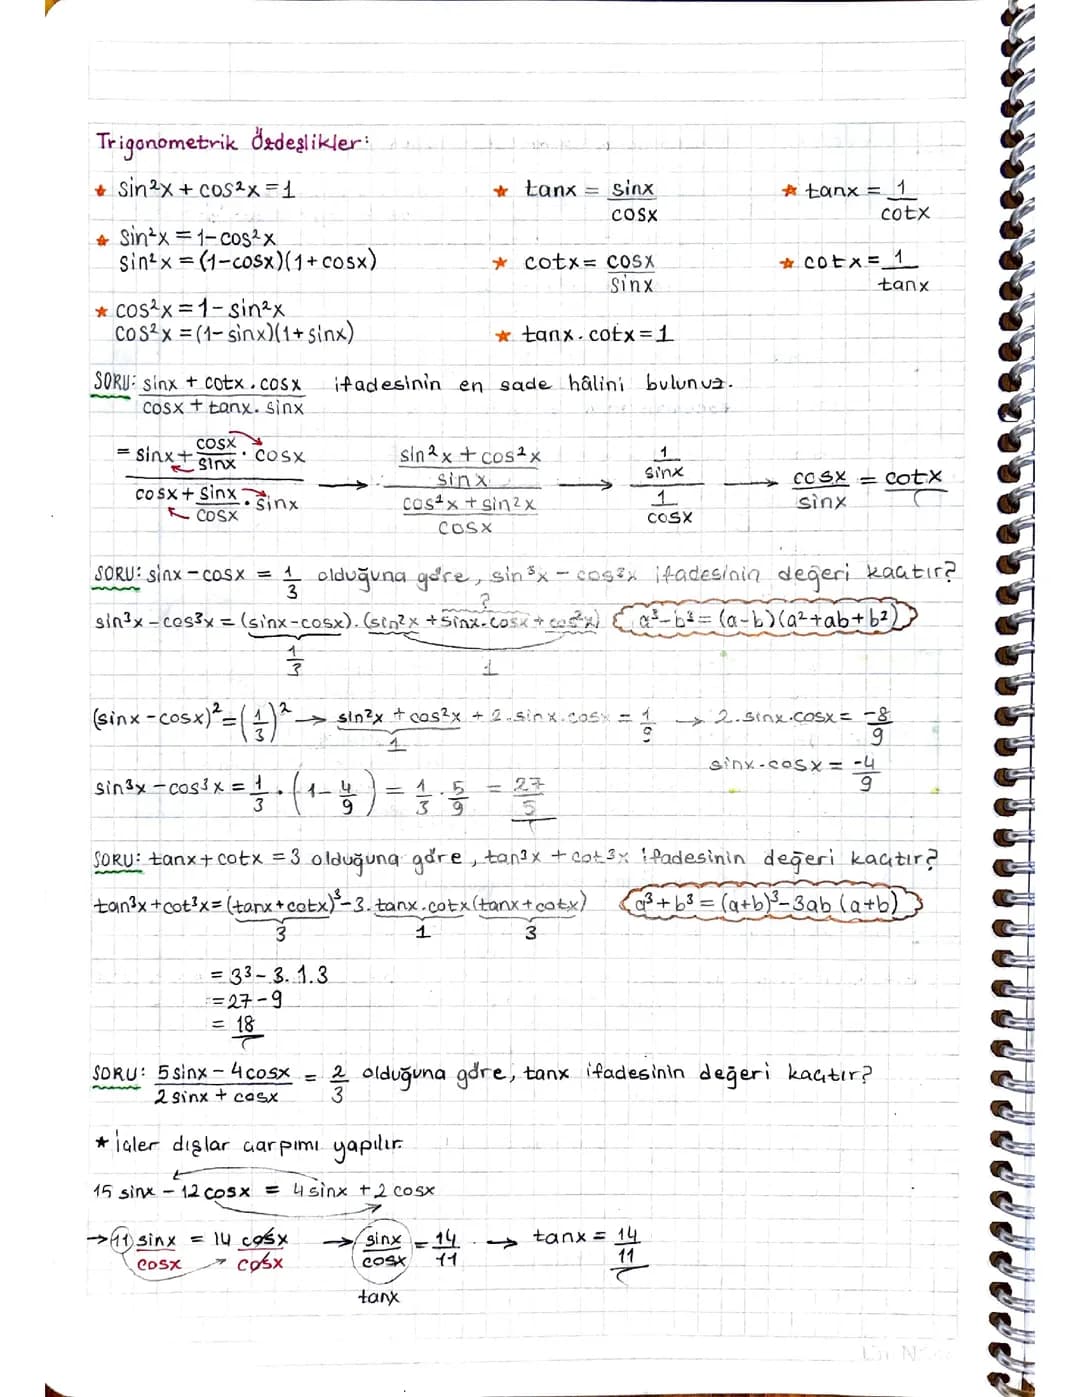 Trigonometrik Özdeşlikler:
★ sin²x + cos²x = 1
★ tanx = sinx / cosx
★ tanx = 1 / cotx
★ sin²x = 1 - cos²x
sin²x = (1-cosx)(1+cosx)
★ cotx = cosx / sinx
★ cotx = 1 / tanx
★ cos²x = 1 - sin²x
cos²x = (1-sinx)(1+sinx)
★ tanx . cotx = 1
SORU: (sinx + cotx . cosx) / (cosx + tanx . sinx) ifadesinin en sade hâlini bulunuz.
= (sinx + cosx/sinx . cosx) / (cosx + sinx/cosx . sinx) → ((sin²x + cos²x)/sinx) / ((cos²x + sin²x)/cosx) → (1/sinx) / (1/cosx) → cosx/sinx = cotx
SORU: sinx - cosx = 1/3 olduğuna göre, sin³x - cos³x ifadesinin değeri kaçtır?
?
sin³x - cos³x = (sinx - cosx) . (sin²x + sinx.cosx + cos²x) a³-b³ = (a-b)(a²+ab+b²)
1/3 1
(sinx - cosx)² = (1/3)² → sin²x + cos²x + 2.sinx.cosx = 1/9 → 2.sinx.cosx = -8/9
1
sinx.cosx = -4/9
sin³x - cos³x = 1/3 . (1 - 4/9) = 1/3 . 5/9 = 27/5
SORU: tanx + cotx = 3 olduğuna göre, tan³x + cot³x ifadesinin değeri kaçtır?
tan³x + cot³x = (tanx+cotx)³ - 3.tanx.cotx(tanx+cotx) a³+b³ = (a+b)³-3ab(a+b)
3 1 3
= 3³ - 3.1.3
= 27 - 9
= 18
SORU: (5sinx - 4cosx) / (2sinx + cosx) = 2/3 olduğuna göre, tanx ifadesinin değeri kaçtır?
★ İçler dışlar çarpımı yapılır.
15 sinx - 12 cosx = 4 sinx + 2 cosx
→ 11 sinx / cosx = 14 cosx / cosx → sinx/cosx = 14/11 → tanx = 14/11
tanx